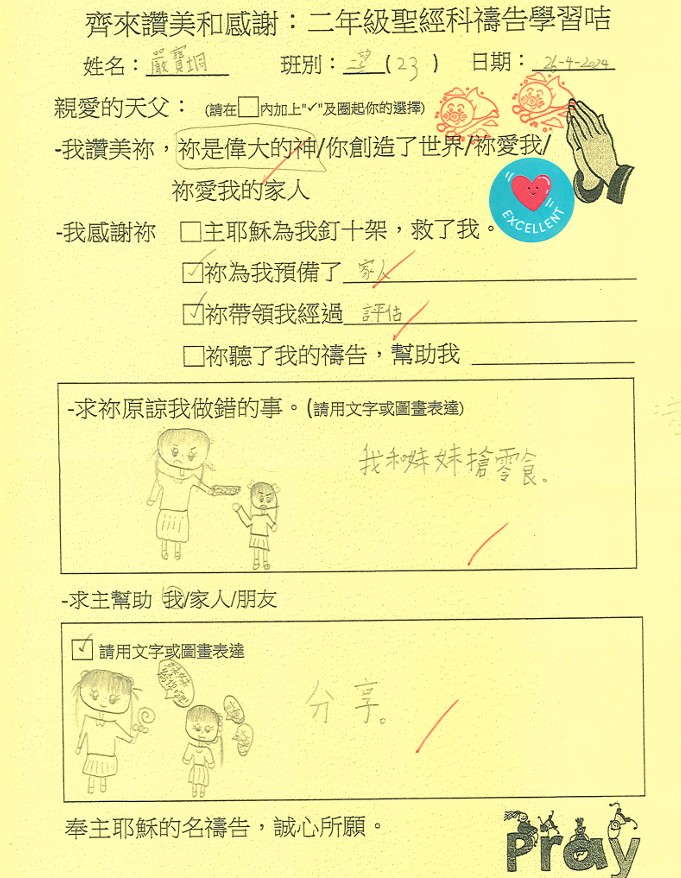 齊來讚美和感謝：二年級聖經科禱告學習咭
姓名：嚴寶垌 班別：二望(23) 日期：26-4-2024
親愛的天父：(請在□內加上"✓"及圈起你的選擇)
-我讚美祢，祢是偉大的神/你創造了世界/祢愛我/
祢愛我的家人
EXCELLENT
-我感謝祢 □主耶穌為我釘十架，救了我。
☑祢為我預備了 家人
☑祢帶領我經過 評估
□祢聽了我的禱告，幫助我
-求祢原諒我做錯的事。(請用文字或圖畫表達)
我和妹妹搶零食。
-求主幫助 我/家人/朋友
☑請用文字或圖畫表達
分享。
奉主耶穌的名禱告，誠心所願。
Pray